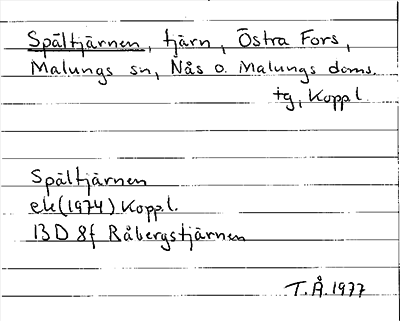 Spältjärnen, tjärn, Östra Fors,
Malungs sn, Nås o. Malungs doms.
tg, Koppl.
Spältjärnen
ek (1974) Koppl.
13D 8f Råbergstjärnen
T.Å. 1977